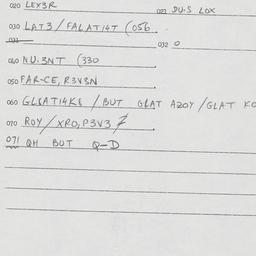 020 LEX3R 022 DU.S LOX
030 LAT3/FALAT14T (056
031 032 0
040 NU.3NT (330
050 FAR-CE, R3V3N
060 GLSAT14KS / BUT GLAT AZOY/GLAT KO
070 ROY/XRO, P3V3 Z
071 QH BUT Q-D